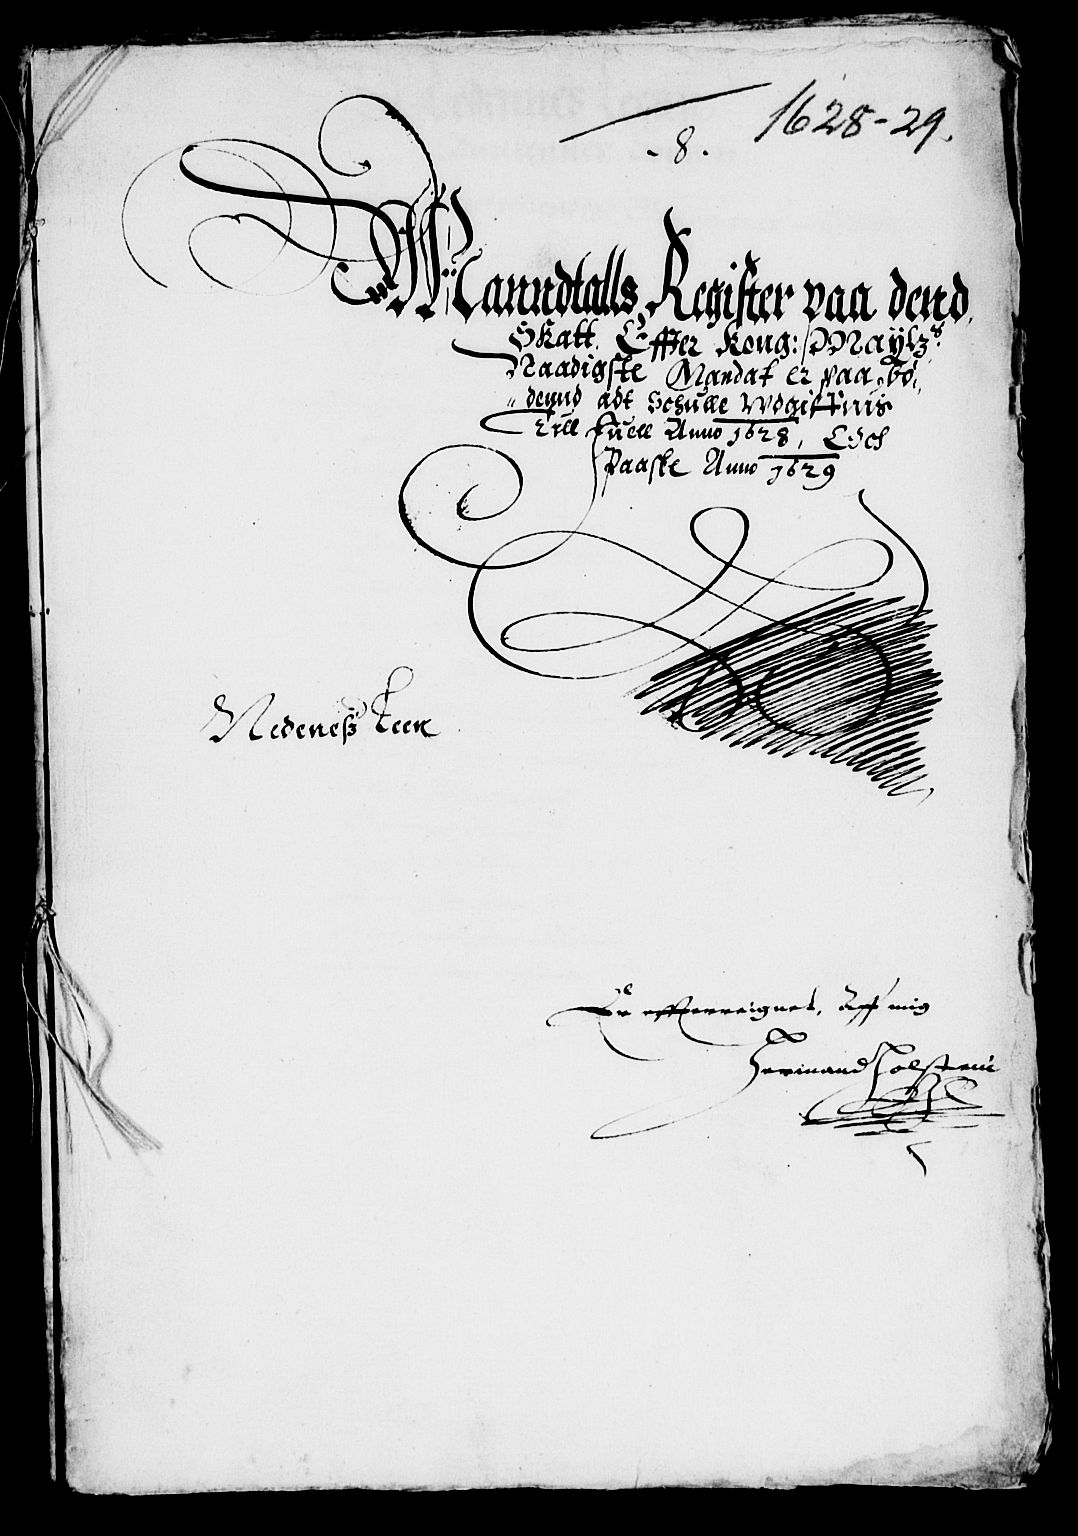 1628-29.
-8.
Manndtalls Register paa dend
Skatt. Effter Kong: Maytz
Naadigste Mandat er paa bö,,
,,dennd adt Schulle Udgifftis
Till Juell Anno 1628, Och
Paaske Anno 1629
Nedeneß Leen
Er offuerreignet, Aff mig
Hermand Holsteni